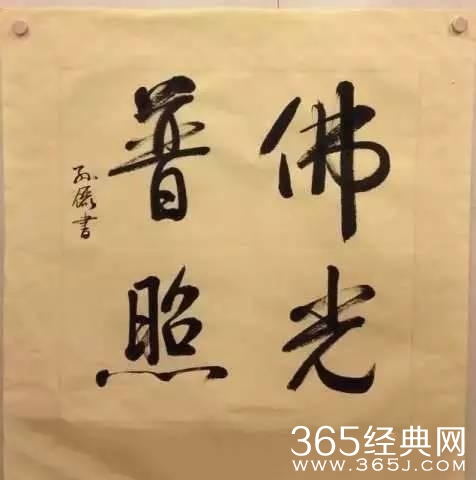 佛光
普照
365经典网
WWW.365J.COM